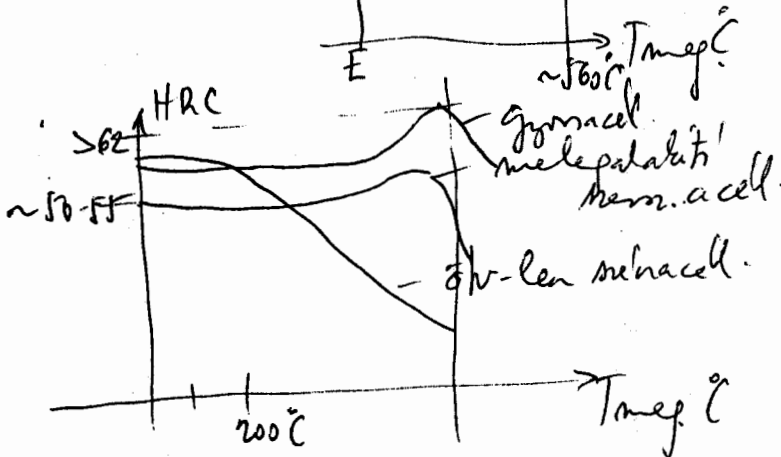 E
~560°C
Tmeg °C
HRC
>62
gyorsacél
melegalakító
szersz. acél.
~50-55
ötv-len szénacél.
200°C
Tmeg. °C